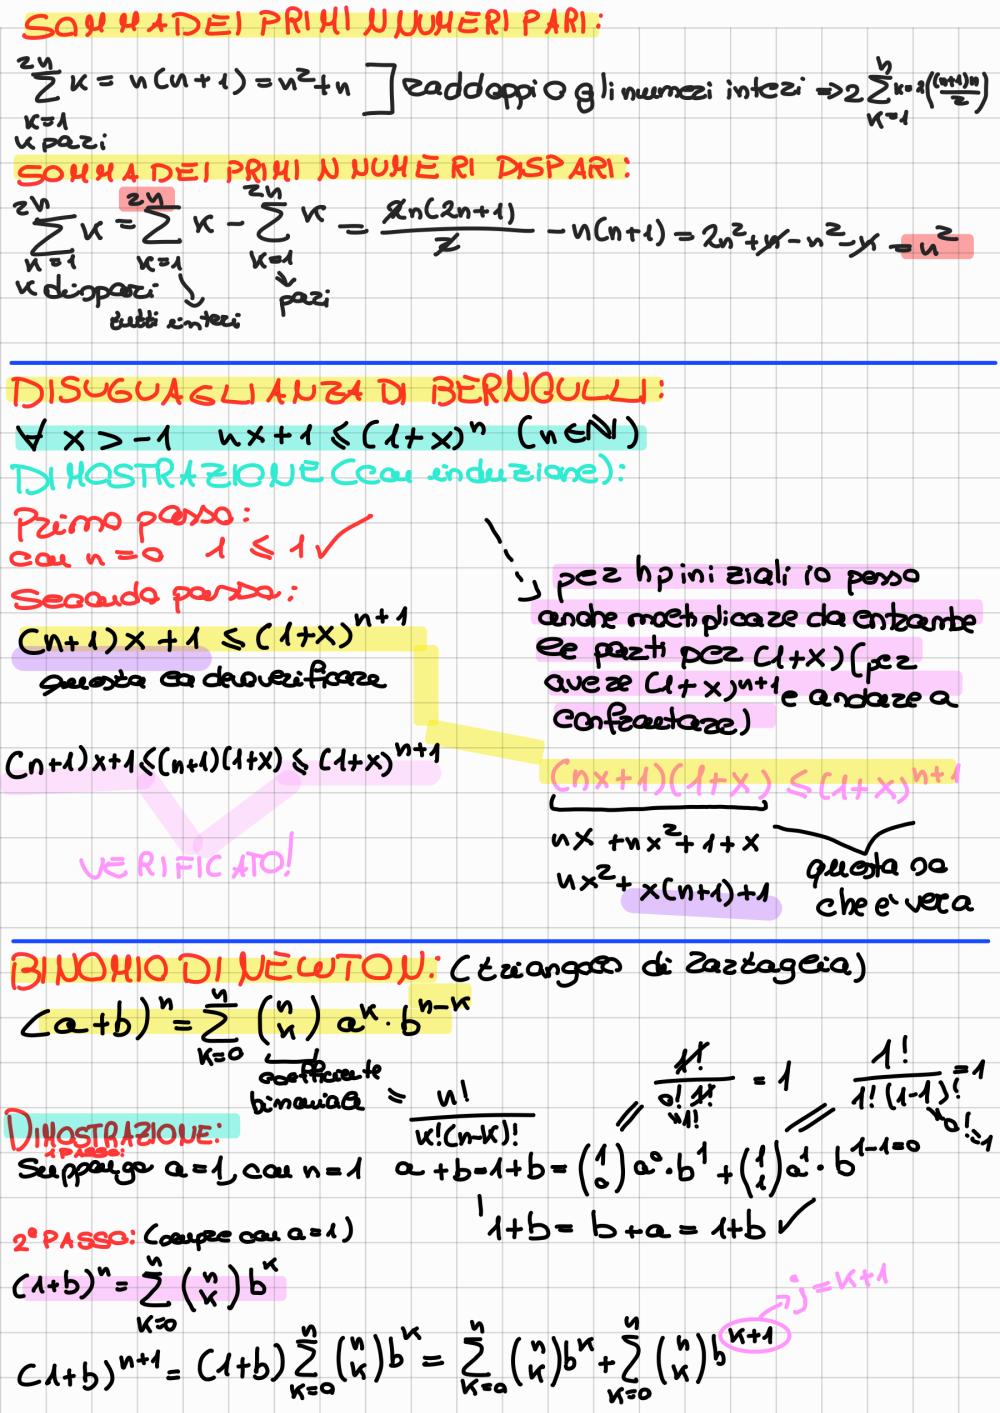 SOMMA DEI PRIMI N NUMERI PARI:
2n
∑ k = n(n+1) = n²+n ] raddoppio gli numeri interi ⇒ 2 ∑ⁿₖ₌₁ k = 2((n+1)n/2)
k=1
k pari
SOMMA DEI PRIMI N NUMERI DISPARI:
2n 2n 2n
∑ k = ∑ k - ∑ k = 2n(2n+1)/2 - n(n+1) = 2n²+n-n²-n = n²
n=1 k=1 k=1
k dispari pari
tutti interi
DISUGUAGLIANZA DI BERNOULLI:
∀ x > -1 nx+1 ⩽ (1+x)ⁿ (n∈ℕ)
DIMOSTRAZIONE (con induzione):
Primo passo:
con n=0 1 ⩽ 1 ✓
Secondo passo:
(n+1)x+1 ⩽ (1+x)ⁿ⁺¹
questa è da verificare
(n+1)x+1 ⩽ (n+1)(1+x) ⩽ (1+x)ⁿ⁺¹
VERIFICATO!
per hp iniziali io posso
anche moltiplicare da entrambe
le parti per (1+x) (per
avere (1+x)ⁿ⁺¹ e andare a
confrontare)
(nx+1)(1+x) ⩽ (1+x)ⁿ⁺¹
nx + nx² + 1 + x
nx² + x(n+1)+1
questa so
che è vera
BINOMIO DI NEWTON: (triangolo di Tartaglia)
(a+b)ⁿ = ∑ⁿₖ₌₀ (n k) aᵏ · bⁿ⁻ᵏ
coefficiente
binomiale = n!/k!(n-k)!
1!/0! 1! = 1 1!/1!(1-1)! = 1
=1! 0!=1
DIMOSTRAZIONE:
1 PASSO:
Suppongo a=1, con n=1 a+b=1+b = (1 0) a⁰ · b¹ + (1 1) a¹ · b¹⁻¹⁼⁰
1+b = b+a = 1+b ✓
2° PASSO: (sempre con a=1)
(1+b)ⁿ = ∑ⁿₖ₌₀ (n k) bᵏ
j=k+1
(1+b)ⁿ⁺¹ = (1+b) ∑ⁿₖ₌₀ (n k) bᵏ = ∑ⁿₖ₌₀ (n k) bᵏ + ∑ⁿₖ₌₀ (n k) bᵏ⁺¹